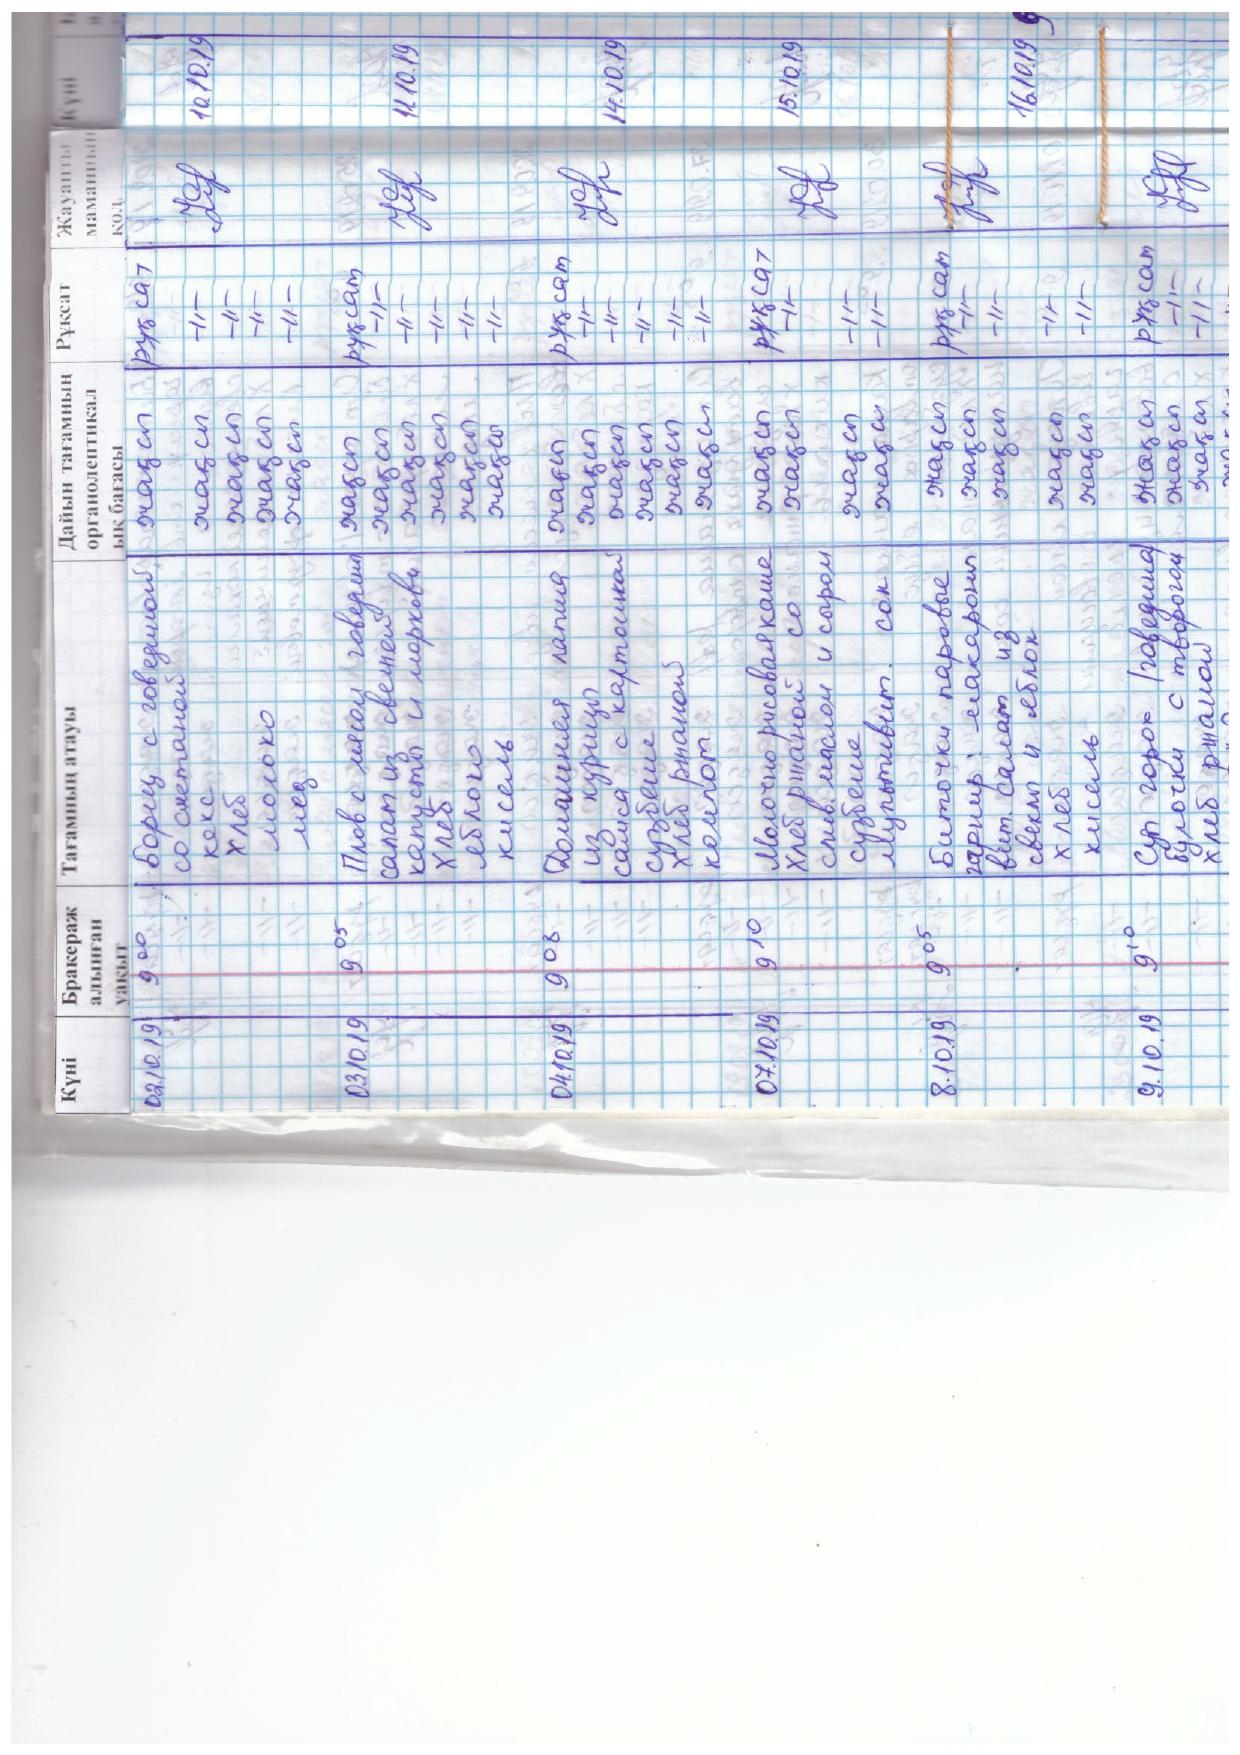 Күні
Бракераж алынған уақыт
Тағамның атауы
Дайын тағамның органолептикал ық бағасы
Рұқсат
Жауапты маманның қол
Күні
02.10.19 9 00 Борщ с говединой, жақсы рұқсат
со сметаной
кекс жақсы -//-
хлеб жақсы -//-
молоко жақсы -//-
мед жақсы -//-
03.10.19 9 05 Плов с мясом говедина жақсы рұқсат
салат из свежей жақсы -//-
капусты и моркови жақсы -//-
хлеб жақсы -//-
яблоко жақсы -//-
кисель жақсы -//-
04.10.19 9 08 Домашняя лапша жақсы рұқсат
из курицы жақсы -//-
самса с картошкой жақсы -//-
сузбеше жақсы -//-
хлеб ржаной жақсы -//-
компот жақсы -//-
07.10.19 9 10 Молочно рисовая каша жақсы рұқсат
хлеб ржаной со жақсы -//-
слив. маслом и сыром
сузбеше жақсы -//-
Мультивит. сок жақсы -//-
8.10.19 9 05 Биточки паровые жақсы рұқсат
гарнир: макароны жақсы -//-
вит. салат из жақсы -//-
свеклы и яблок
хлеб жақсы -//-
кисель жақсы -//-
9.10.19 9 10 Суп горох /говедина/ жақсы рұқсат
булочки с творогом жақсы -//-
хлеб ржаной жақсы -//-
10.10.19
11.10.19
14.10.19
15.10.19
16.10.19 9